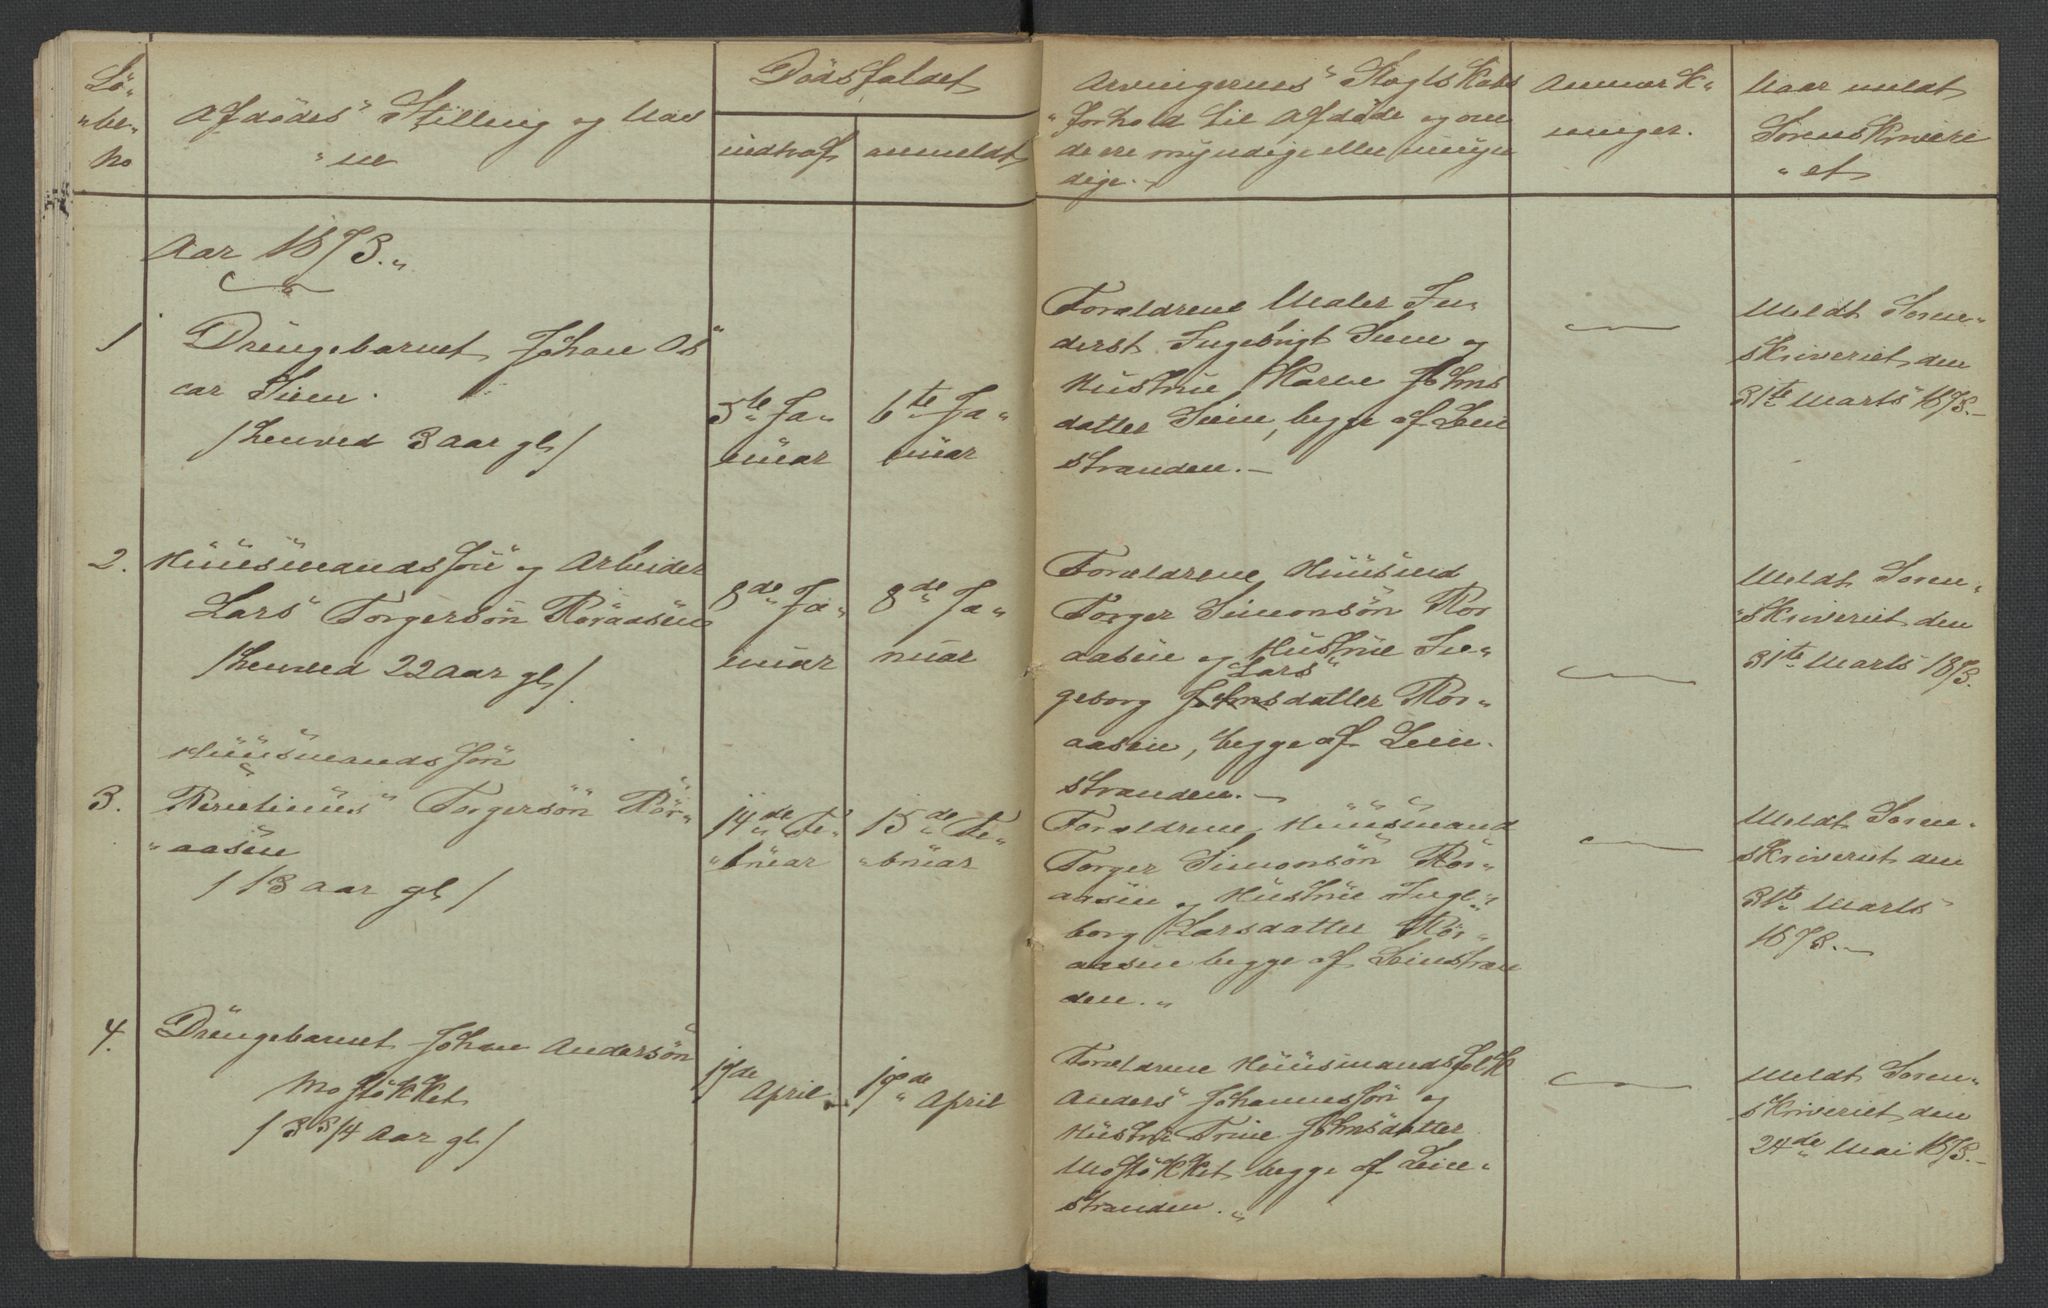 Lö-
"be-
No
Afdödes Stilling og Nav
"ne
Dödsfaldet
indtraf
anmeldt
Arvingernes Slægtskabs
"forhold til Afdöde og om
de ere myndige eller umyn
dige.-
Anmærk-
ninger.
Naar meldt
Sorenskriveri
"et
Aar 1873."
1
Drengebarnet Johan Os
car Siem.
/henved 3 Aar gl/
5te Ja-
nuar
6te Ja-
nuar
Forældrene Maler In-
derst Ingebrigt Siem og
Hustrue Karen Johns
datter Siem, begge af Lein
stranden.-
Meldt Soren-
skriveriet den
31te Marts 1873.-
2.
Huusmandssön og Arbeider
Lars Torgersön Röraasen
/henved 22 Aar gl/.
8de Ja-
nuar
8de Ja-
nuar
Forældrene Huusmd
Torger Simonsön Rör
aasen og Hustrue In-
Lars
geborg Johnsdatter Rör-
aasen, begge af Lein-
stranden.-
Meldt Soren-
"skriveriet den
31te Marts 1873.
Huusmandssön
3.
Torgersön Rör-
"aasen
/ 13 Aar gl/
14de Fe-
"bruar
15de Fe-
"bruar
Forældrene Huusmand
Torger Simonsön Rör-
aasen og Hustrue Inge-
borg Larsdatter Rör-
aasen begge af Leinstran
den."
Meldt Soren-
skriveriet den
31te Marts
1873.-
4.
Drengebarnet Johan Andersön
Mostökket
/ 3 3/4 Aar gl/
April
19de
" April
Forældrene Huusmandsfolk
Anders Johannessön og
Hustrue Trine Johnsdatter
Mostökket begge af Lein-
stranden."
Meldt Soren-
skriveriet den
24de Mai 1873.-